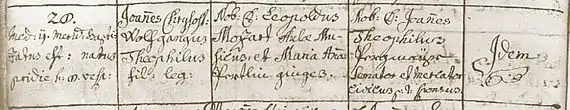 28.
med: 11. merid: baptiz:
natus est: natus
pridie h: 8. vesp:
Joañes Chrysost:
Wolfgangus
Theophilus
fil: leg:
Nob: D: Leopoldus
Mozart Aulæ Mu-
sicus, et Maria Aña
Pertlin giuges.
Nob: D: Joañes
Theophilus
Pergmayr
Senator et Mercator
civicus p: t: sponsus
Idem